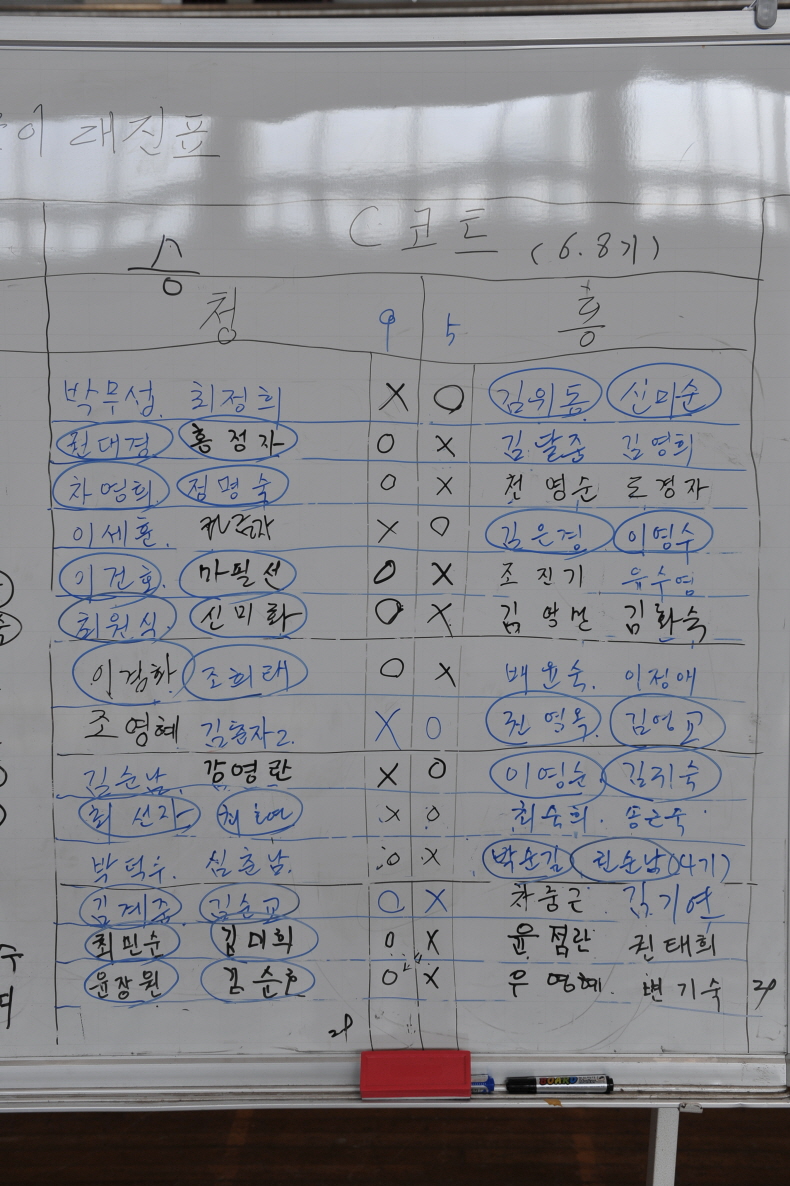 이 대진표
C 코트 (6.8기)
승
청 9 5 홍
박무섭 최정희 X O 김위동 신미순
권대경 홍정자 O X 김달중 김영희
차영희 정명숙 O X 천영순 도경자
이세훈 X O 김은경 이영수
이건호 마필선 O X 조진기 유수염
최원식 신미화 O X 김화숙
이경화 조희태 O X 배윤숙 이정애
조영혜 김춘자2 X O 권영옥 김영교
김순남 강영란 X O 이영순 김귀숙
최선자 X O 최숙희 송근숙
박덕수 심춘남 O X 박순길 권순남(4기)
김계준 김순교 O X 차중근 김기연
최민순 김대희 O X 윤점란 권태희
윤장원 O X 우영혜 변기숙
수
28
28
BOARD